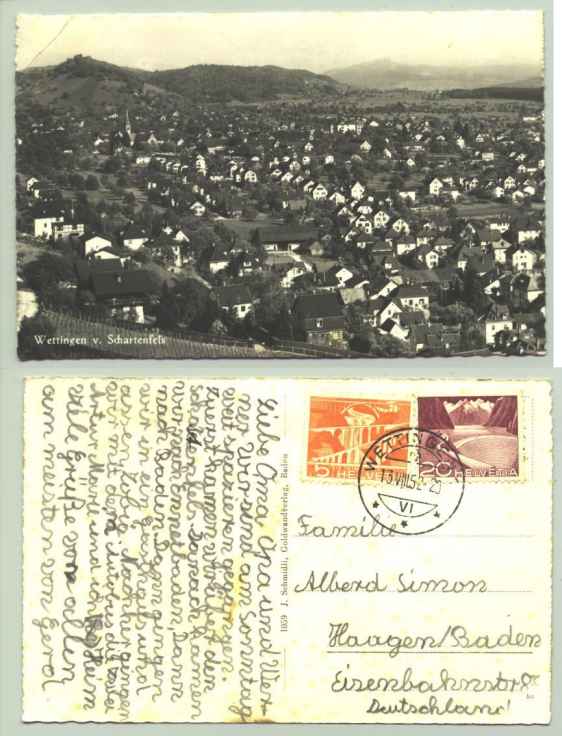 Wettingen v. Schartenfels
Liebe Oma Opa und Wer-
ner. Wir sind am Sonntag
weit spazieren gegangen.
kamen wir über den
Schartenfels. Danach kamen
wir nach Ennetbaden. Dann
nach Baden. Dann gingen
wir in ein Gasthaus und
assen. Nachher gingen
wir mit
und ich
Viele Grüße von allen
am meisten von Gerol
1059 J. Schmidli, Goldwandverlag, Baden
5 HELVETIA
20 HELVETIA
WETTINGEN
13.VIII.52-20
VI
Familie
Alberd Simon
Haagen/Baden
Eisenbahnstr
Deutschland